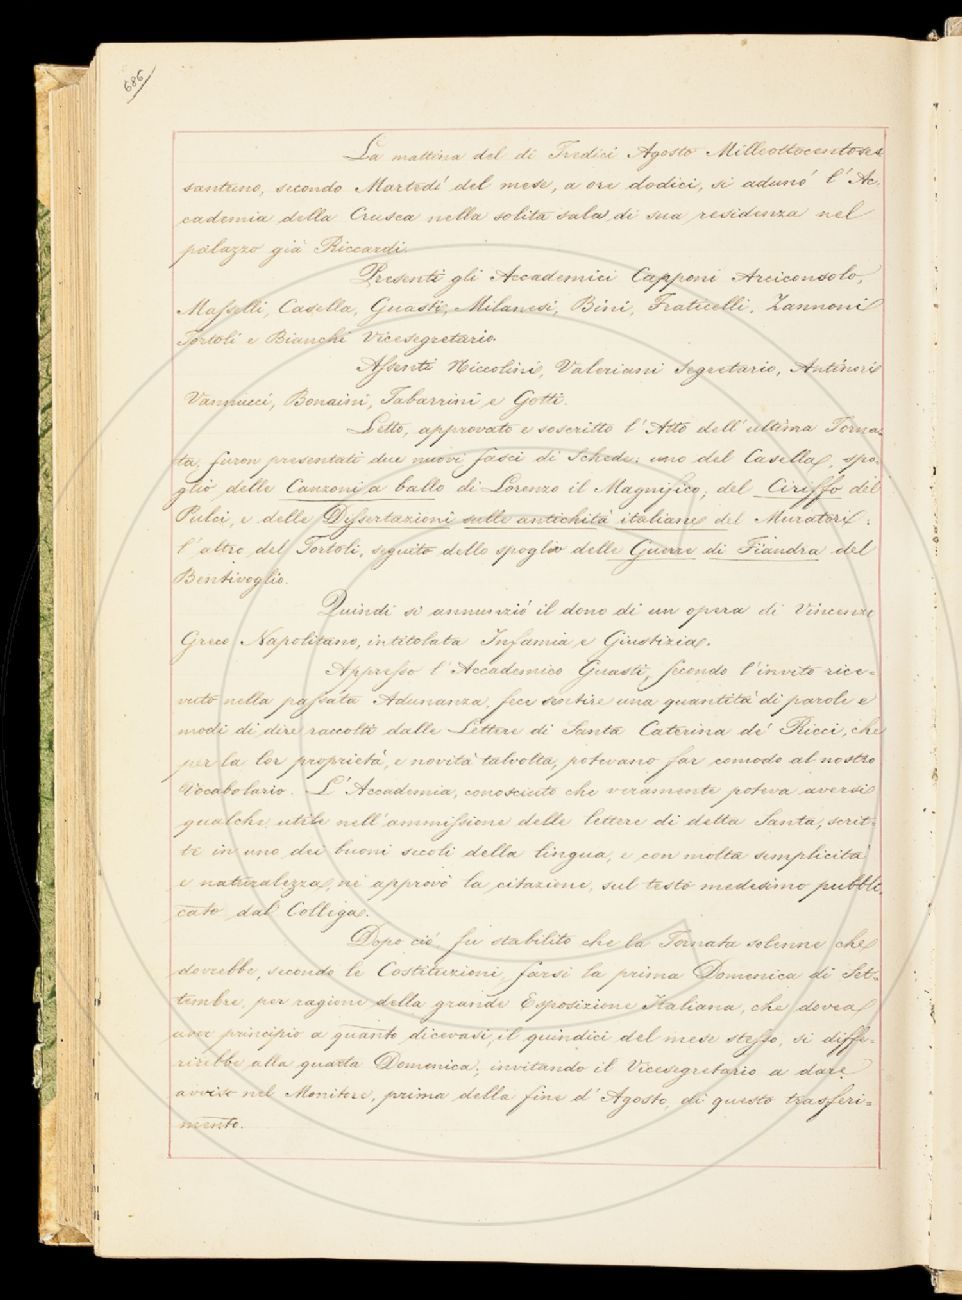 686
La mattina del dì Tredici Agosto Milleottocentoses
santuno, secondo Martedì del mese, a ore dodici, si adunò l'Ac.
cademia della Crusca nella solita sala di sua residenza nel
palazzo già Riccardi.
Presenti gli Accademici Capponi Arciconsolo,
Masselli, Casella, Guasti, Milanesi, Bini, Fraticelli, Zannoni
Tortoli e Bianchi Vicesegretario.
Assenti Niccolini, Valeriani Segretario, Antinori
Vannucci, Bonaini, Tabarrini e Gotti.
Letto, approvato e soscritto l'Atto dell'ultima Torna=
ta, furon presentati due nuovi fasci di Schede: uno del Casella, spo=
glio delle Canzoni a ballo di Lorenzo il Magnifico, del Ciriffo del
Pulci, e delle Dissertazioni sulle antichità italiane del Muratori;
l'altro del Tortoli, seguito dello spoglio delle Guerre di Fiandra del
Bentivoglio.
Quindi si annunziò il dono di un opera di Vincenzo
Greco Napolitano, intitolata Infamia e Giustizia.
Appresso l'Accademico Guasti, secondo l'invito rice=
vuto nella passata Adunanza, fece sentire una quantità di parole e
modi di dire raccolti dalle Lettere di Santa Caterina de' Ricci, che
per la lor proprietà, e novità talvolta, potevano far comodo al nostro
Vocabolario. L'Accademia, conosciuto che veramente poteva aversi
qualche utile nell'ammissione delle lettere di detta Santa, scrit=
te in uno dei buoni secoli della lingua, e con molta semplicità
e naturalezza, ne approvò la citazione, sul testo medesimo pubbli
cato dal Colliga.
Dopo ciò fu stabilito che la Tornata solenne che
dovrebbe, secondo le Costituzioni, farsi la prima Domenica di Set=
tembre, per ragione della grande Esposizione Italiana, che dovea
aver principio a quanto dicevasi, il quindici del mese stesso, si diffe=
rirebbe alla quarta Domenica; invitando il Vicesegretario a dare
avviso nel Monitore, prima della fine d'Agosto, di questo trasferi=
mento.